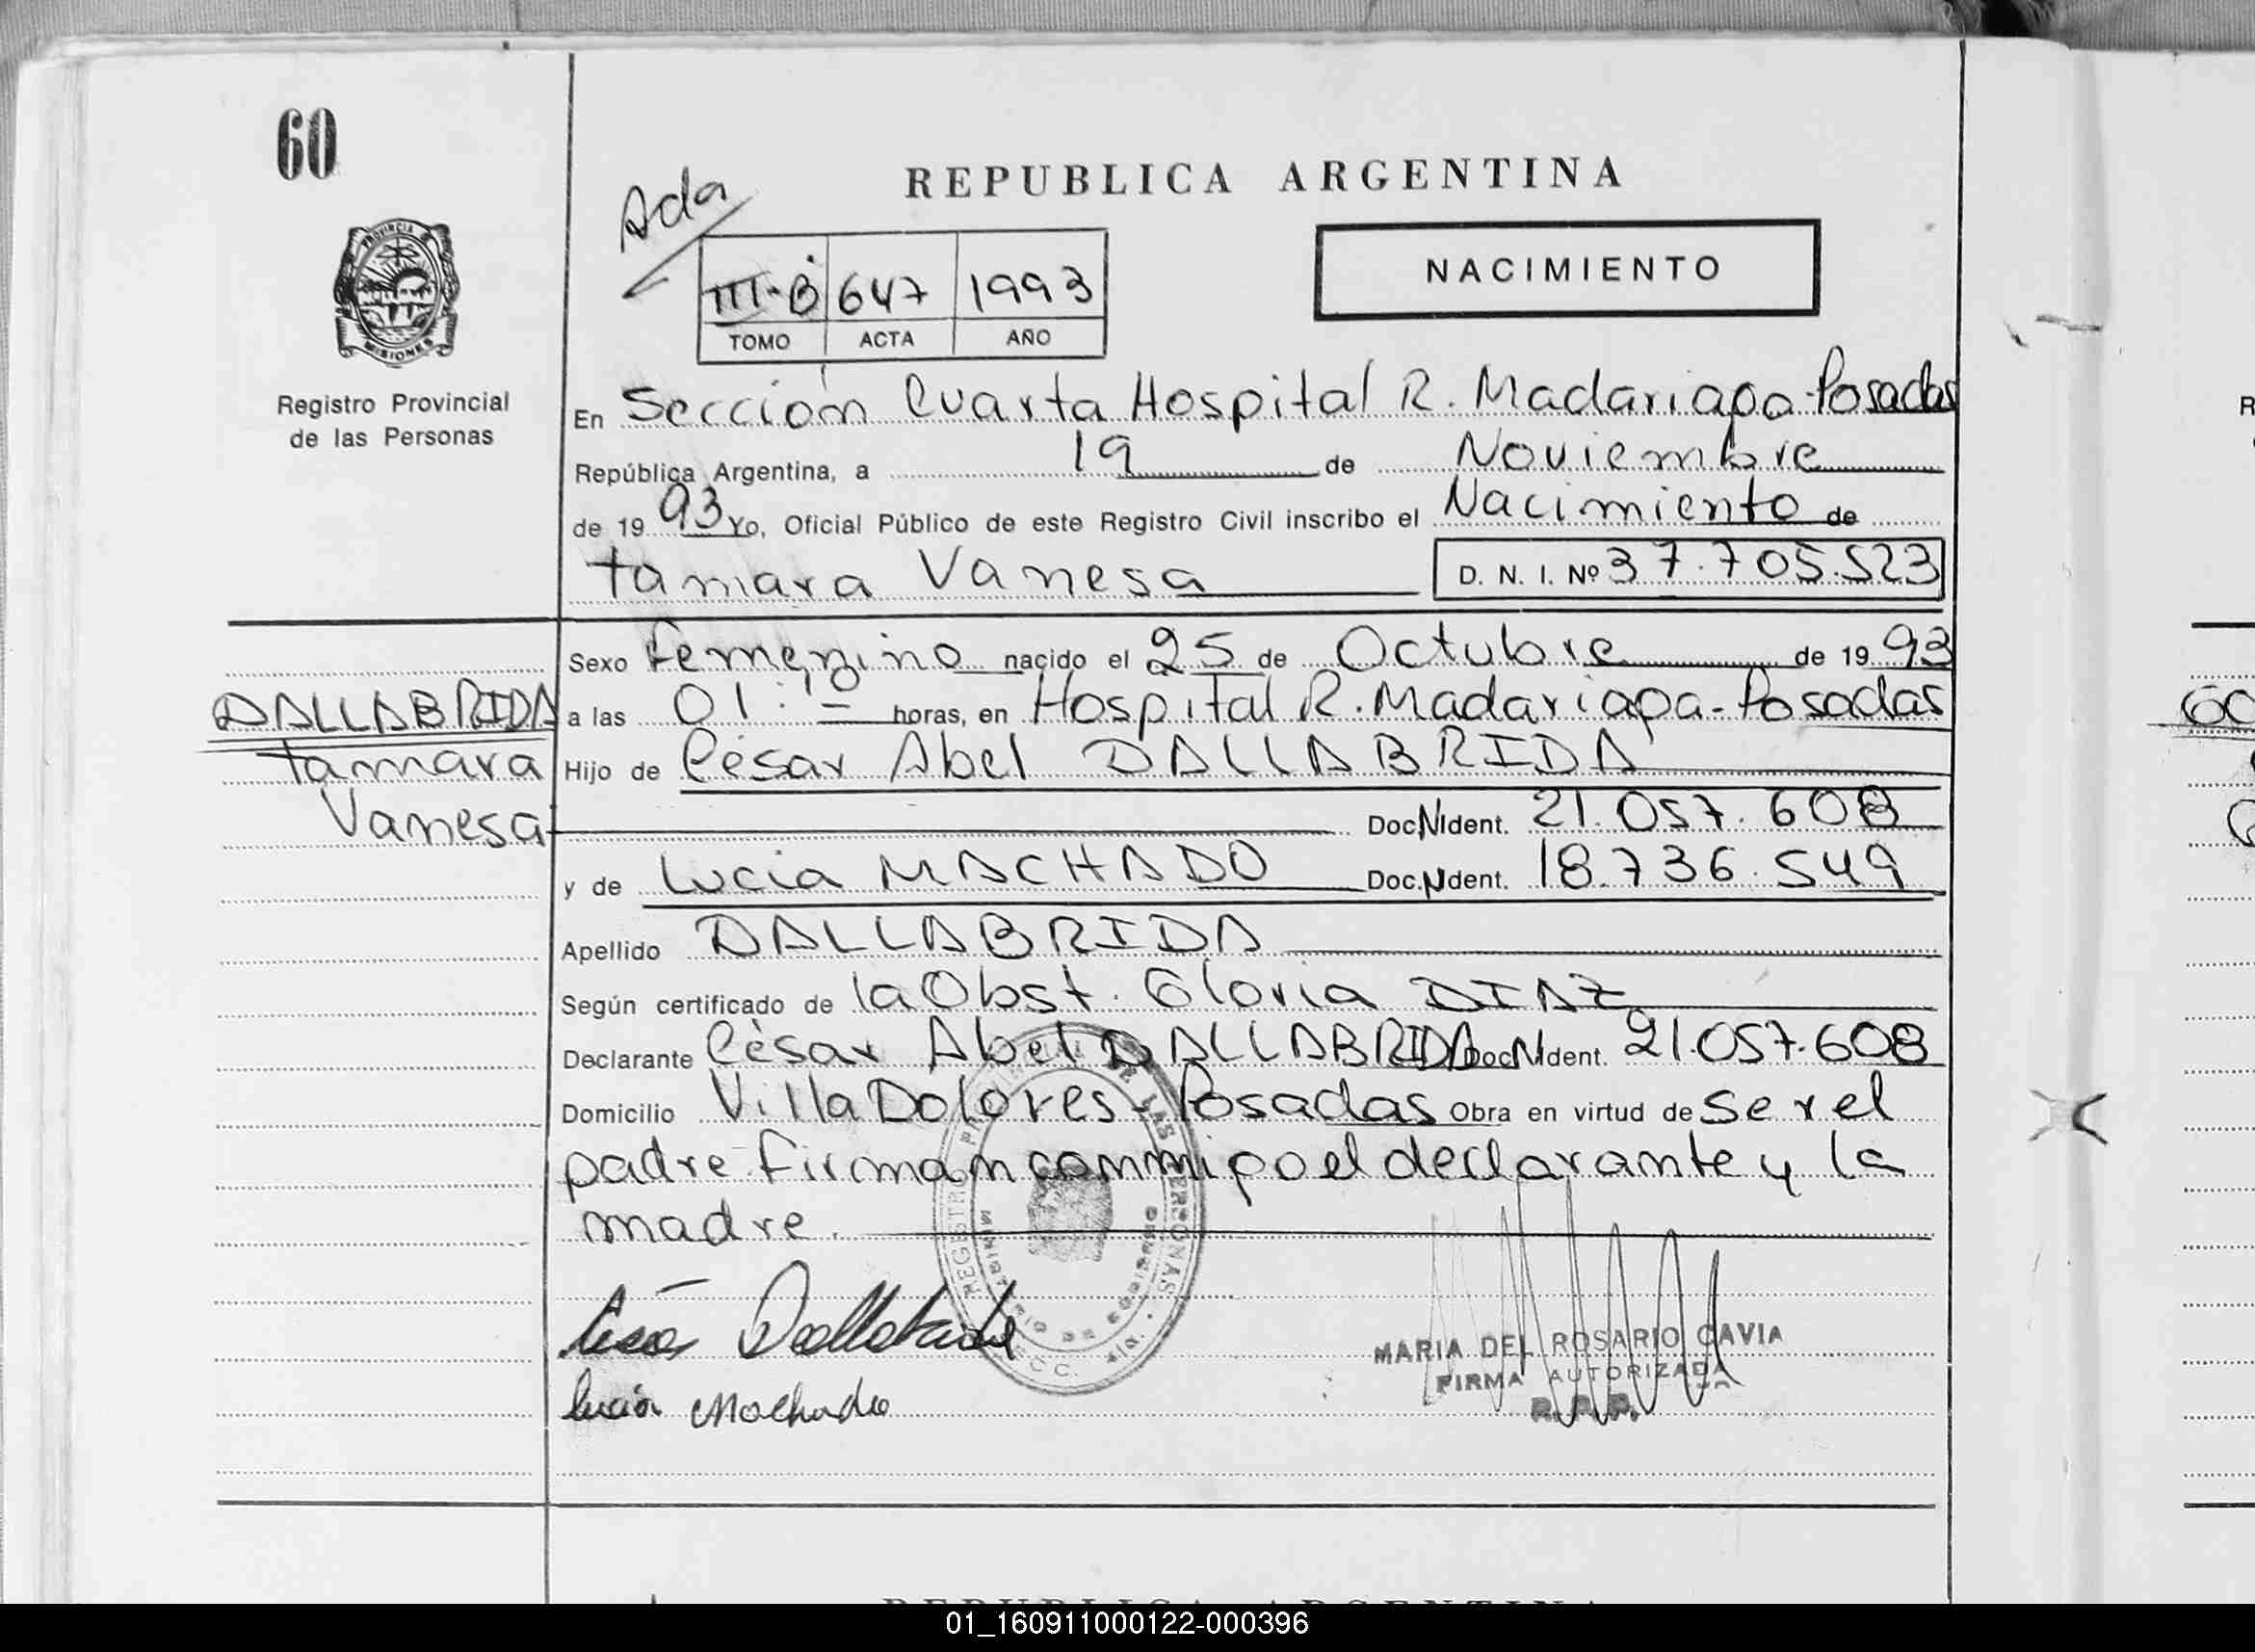 60
PROVINCIA D
MISIONES
Registro Provincial
de las Personas
REPUBLICA ARGENTINA
Ada
III-B 647 1993
TOMO ACTA AÑO
NACIMIENTO
En Sección Cuarta Hospital R. Madariaga-Posadas
República Argentina, a 19 de Noviembre
de 1993 Yo, Oficial Público de este Registro Civil inscribo el Nacimiento de
Tamara Vanesa D. N. I. Nº 37.705.523
Sexo Femenino nacido el 25 de Octubre de 1993
DALLABRIDA a las 01:10 horas, en Hospital R. Madariaga-Posadas
Tamara Hijo de César Abel DALLABRIDA
Vanesa Doc.NIdent. 21.057.608
y de Lucia MACHADO Doc.NIdent. 18.736.549
Apellido DALLABRIDA
Según certificado de la Obst. Gloria DIAZ
Declarante César Abel DALLABRIDA Doc.NIdent. 21.057.608
Domicilio Villa Dolores-Posadas Obra en virtud de ser el
padre Firman conmigo el declarante y la
madre.
REGISTRO PROVINCIAL DE LAS PERSONAS
MINISTERIO DE GOBIERNO
César Dallabrida
MARIA DEL ROSARIO CAVIA
FIRMA AUTORIZADA
R. P. P.
Lucia Machado
REPUBLICA ARGENTINA
01_160911000122-000396